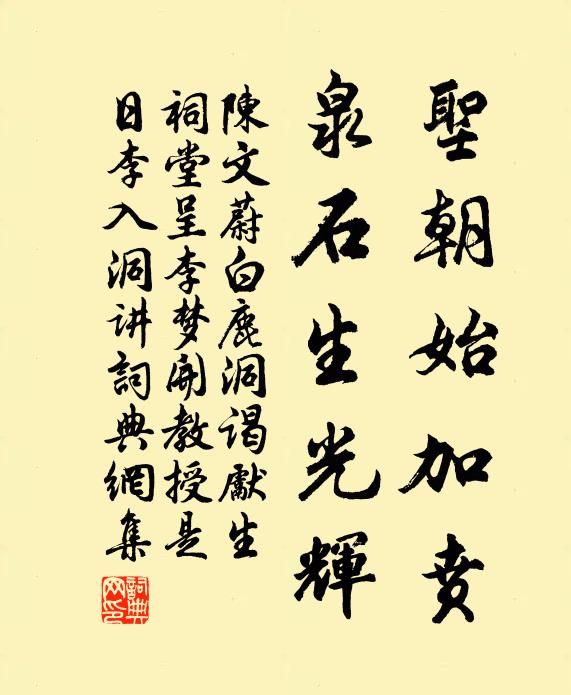 聖朝始加賁
泉石生光輝
陳文蔚白鹿洞谒獻生
祠堂呈李梦開教授是
日李入洞讲詞典網集
詞典